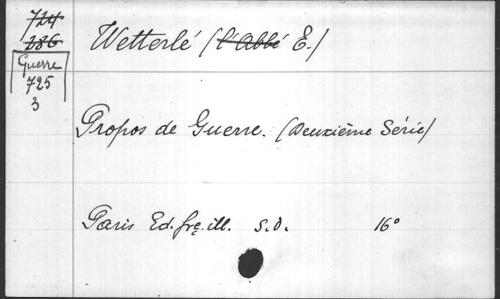 724
286
Guerre
725
3
Wetterlé (l'Abbé E.)
Propos de Guerre. (Deuxième Série)
Paris Ed. frç. ill. S.D. 16°